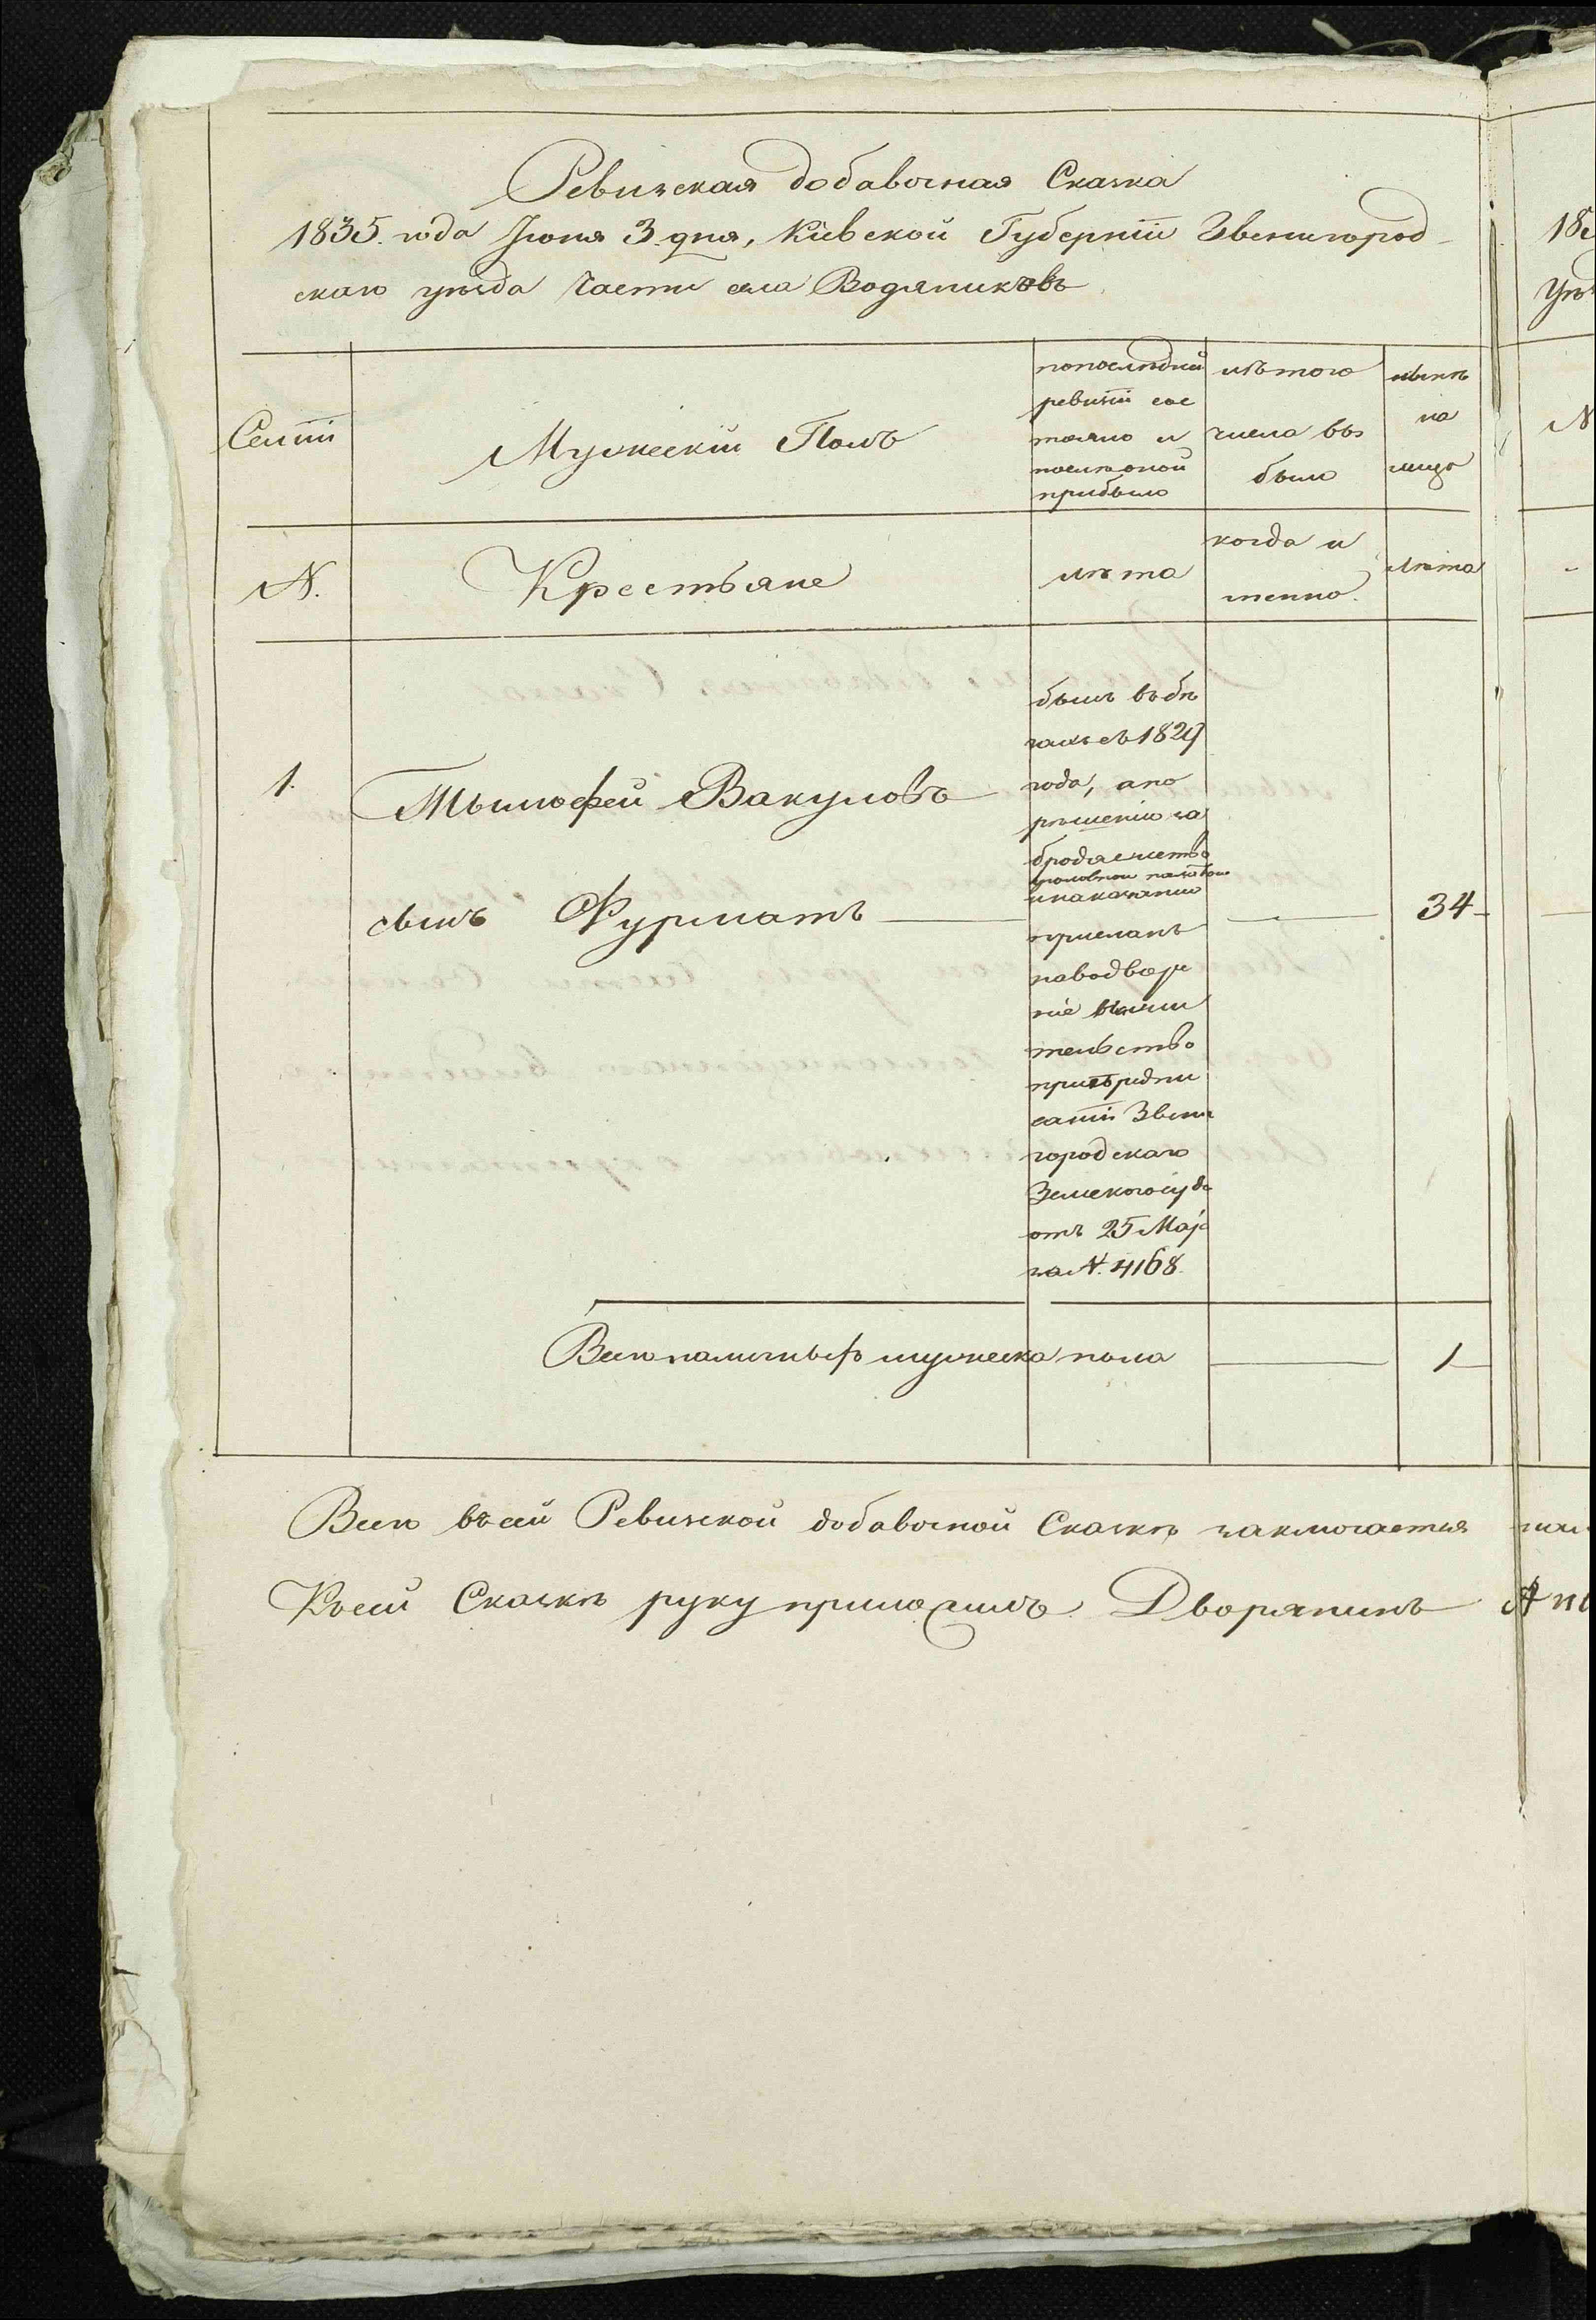 Ревизская добавочная Сказка
1835. года Іюня 3. дня, Кіевской Губерніи Звенигород-
скаго уѣзда части села Водяниковъ
Семіи
Мужескій Полъ
попослѣдней
ревизіи сос
тояло и
послѣ оной
прибыло
изъ того
числа вы
было
нынѣ
на
лицо
N.
Крестьяне
лѣта
когда и
именно.
лѣта
1.
Тымофей Вакуловъ
сынъ Фурматъ
былъ въ бѣ
гахъ съ 1829
года, а по
рѣшенію за
бродяжество
уголовной палатою
и наказанію
присланъ
наводворе
ніе вжи
тельство
при предпи
саніи Звени
городскаго
Земскогосуда
отъ 25 Мая
за N. 4168
34
Всегоналичныхъ мужеска пола
1
Всего всей Ревизской добавочной Сказкѣ заключается
Ксей Сказкѣ руку приложилъ Дворянинъ